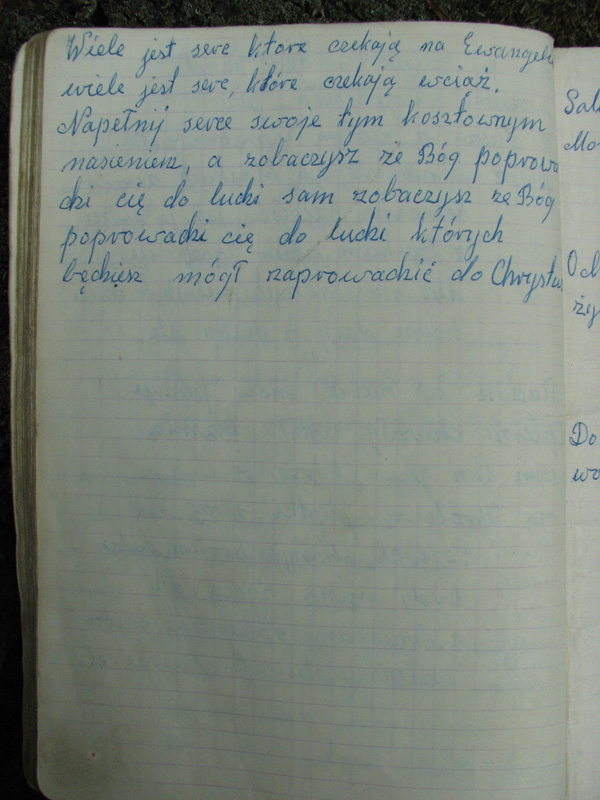 Wiele jest serc które czekają na Ewangelię
wiele jest serc, które czekają wciąż.
Napełnij serce swoje tym kosztownym
nasieniem, a zobaczysz że Bóg poprowa
dzi cię do ludzi sam zobaczysz że Bóg
poprowadzi cię do ludzi których
będziesz mógł zaprowadzić do Chrystusa
Do